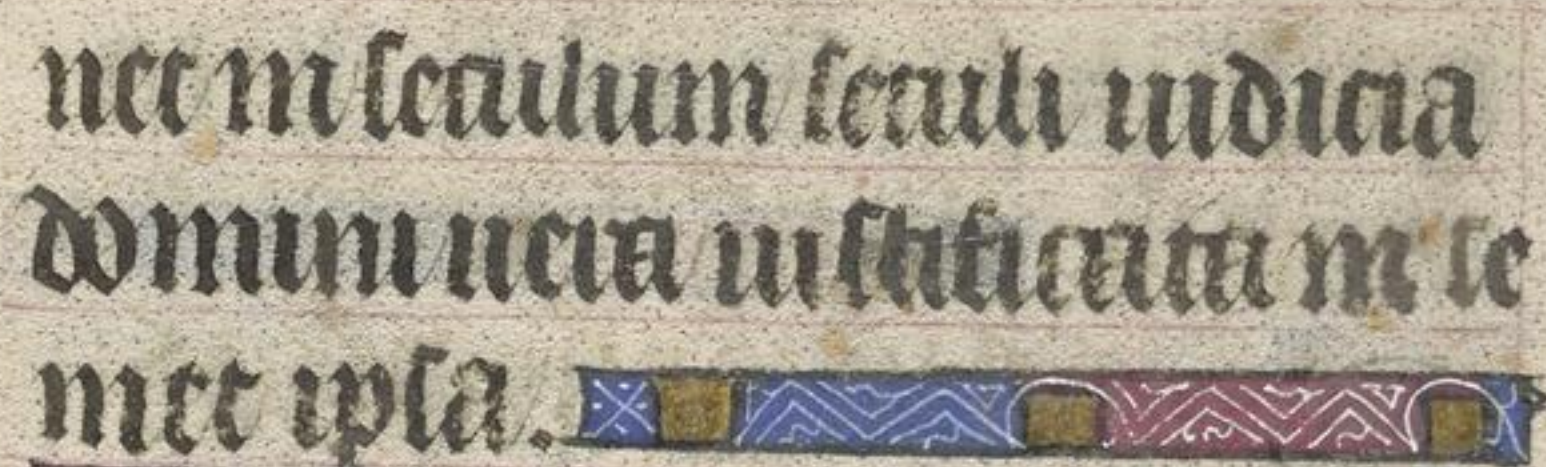 net in seculum seculi iudicia
domini uera iustificata in se
met ipsa.